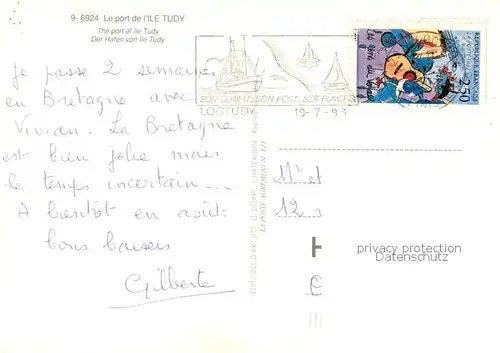 9-6924 Le port de l'ILE TUDY
The port of Ile Tudy
Der Hafen von Ile Tudy
Je passe 2 semaines
en Bretagne avec
Vivian. La Bretagne
est bien jolie mais
le temps incertain...
A bientôt en août.
bons baisers
Gilberte
SON CLIMAT, SON PORT, SES PLAGES
LOCTUDY 19-7-93
2,50
Mr et
12
privacy protection
Datenschutz